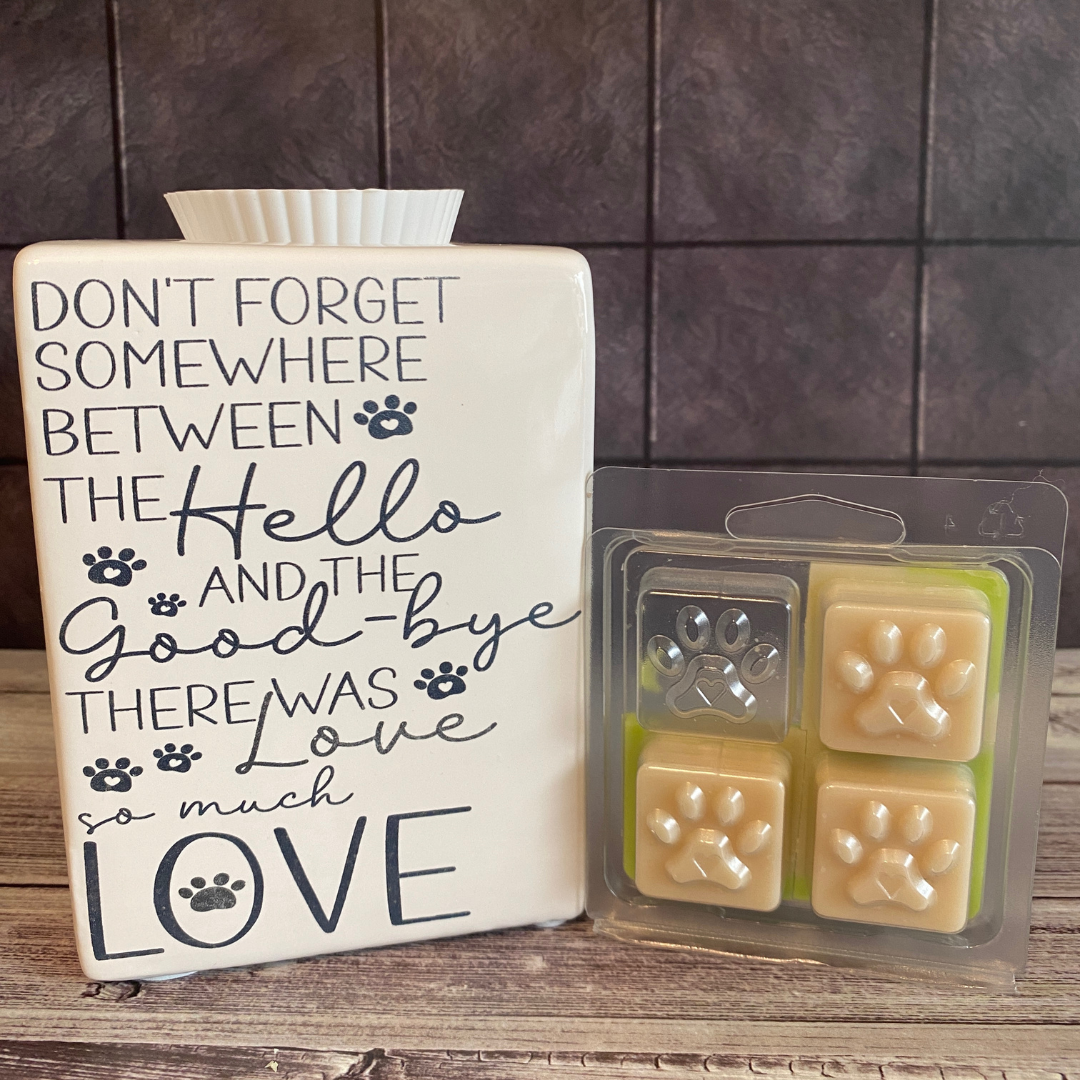 DON'T FORGET
SOMEWHERE
BETWEEN
THE Hello
AND THE
Good-bye
THERE WAS
Love
so much
LOVE